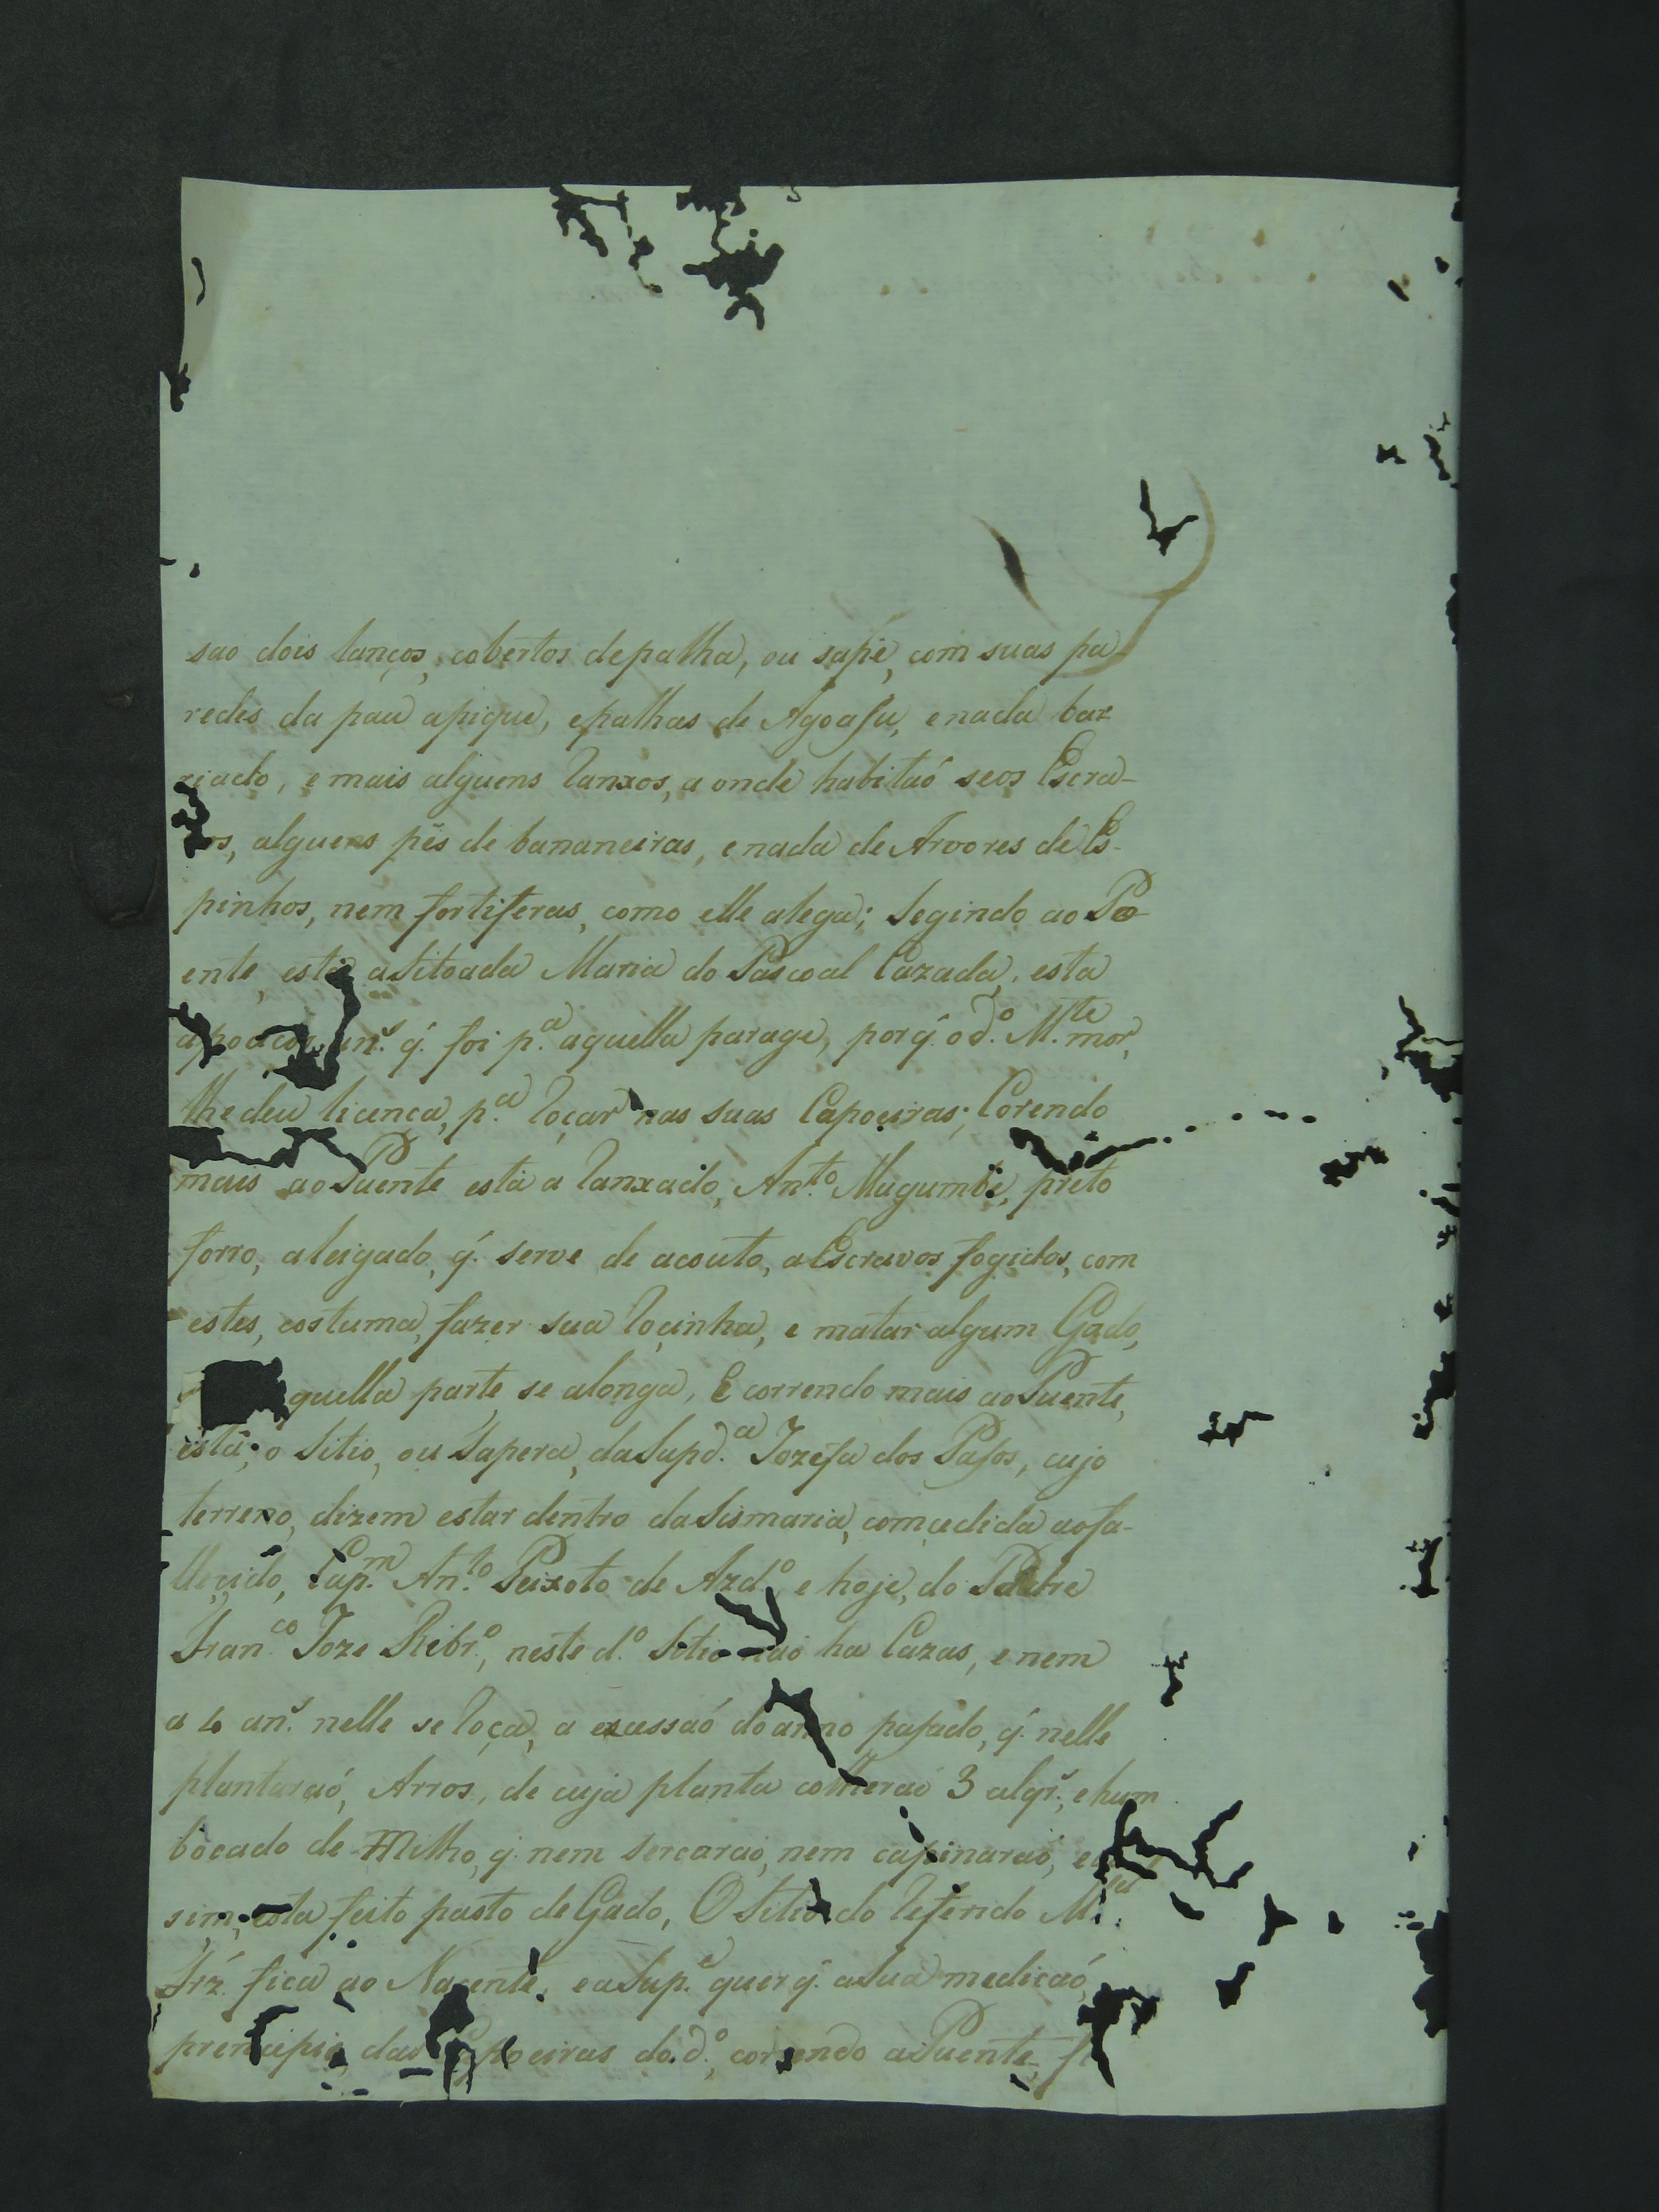 sao dois lanços, cobertos depalha, ou sapé, com suas pa
redes da pau apique, epalhas de Agoasu, enada bar
riado, e mais alguens Ranxos, a onde habitaó seos Escra-
os, alguens pés de bananeiras, e nada de Arvores de Es-
pinhos, nem fortiferas, como elle alega; Segindo ao Po-
ente, está asitoada Maria do Pascoal Cazada, esta
an.s q̃. foi p.a aquella parage, porq̃. o d.o M.te mor,
lhe deu licenca, p.a Roçar nas suas Capoeiras; Corendo
mais ao Puente está a Ranxado, Ant.o Mugumbé, preto
forro, aleigado, q̃. serve de acouto, a Escravos fogidos, com
estes, costuma, fazer sua Rocinha, e matar algum Gado,
quella parte, se alonga, E correndo mais ao Puente,
está; o Sitio, ou Tapera, da Sup.da Jozefa dos Pasos, cujo
terreno, dizem estar dentro da Sismaria, comcedida aofa-
llecido, Cap.m Ant.o Peixoto de Azd.o e hoje, do Padre
Fran.co Joze Ribr.o, neste d.o Sitio naó ha Cazas, e nem
a 4 an.s nelle se Roça, a excessaó do anno pasado, q̃. nelle
plantaraó, Arros, de cuja planta colheraó 3 alqr.s, ehum
bocado de Milho, q̃. nem sercaraó, nem capinaraó,
sim, esta feito pasto de Gado, O Sitio do Referido M.el
Frz. fica ao Nacente, e a Sup.e quer q̃. a Sua medicaó,
prencipie das Capoeiras do d.o, correndo a Puente,